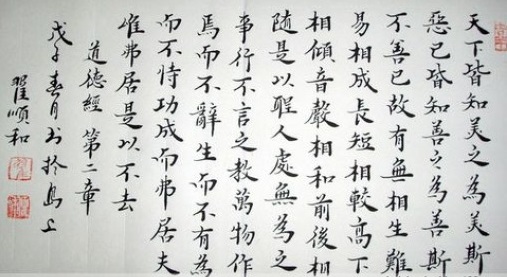 天下皆知美之為美斯
惡已皆知善之為善斯
不善已故有無相生難
易相成長短相較高下
相傾音聲相和前後相
隨是以聖人處無為之
事行不言之教萬物作
焉而不辭生而不有為
而不恃功成而弗居夫
惟弗居是以不去
道德經 第二章
戊子春月书於島上
瞿順和